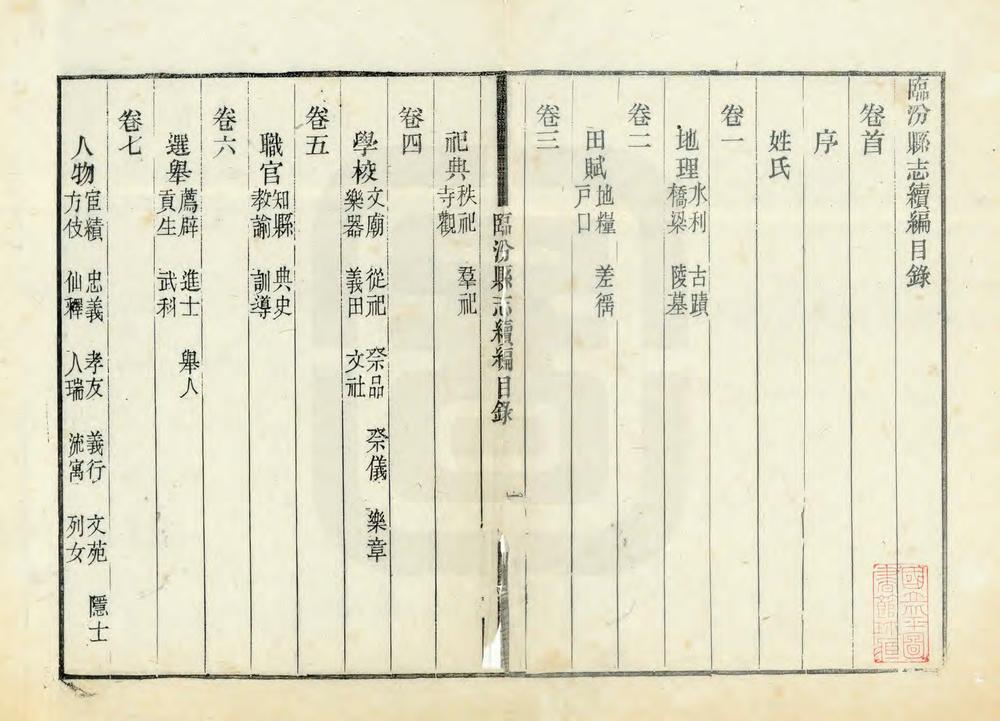 臨汾縣志續編目錄
卷首
序
姓氏
卷一
地理 水利 古蹟
橋梁 陵墓
卷二
田賦 地糧 差徭
戶口
卷三
臨汾縣志續編目錄
祀典 秩祀 羣祀
寺觀
卷四
學校 文廟 從祀 祭品 祭儀 樂章
樂器 義田 文社
卷五
職官 知縣 典史
教諭 訓導
卷六
選舉 薦辟 進士 舉人
貢生 武科
卷七
人物 宦績 忠義 孝友 義行 文苑 隱士
方伎 仙釋 人瑞 流寓 列女